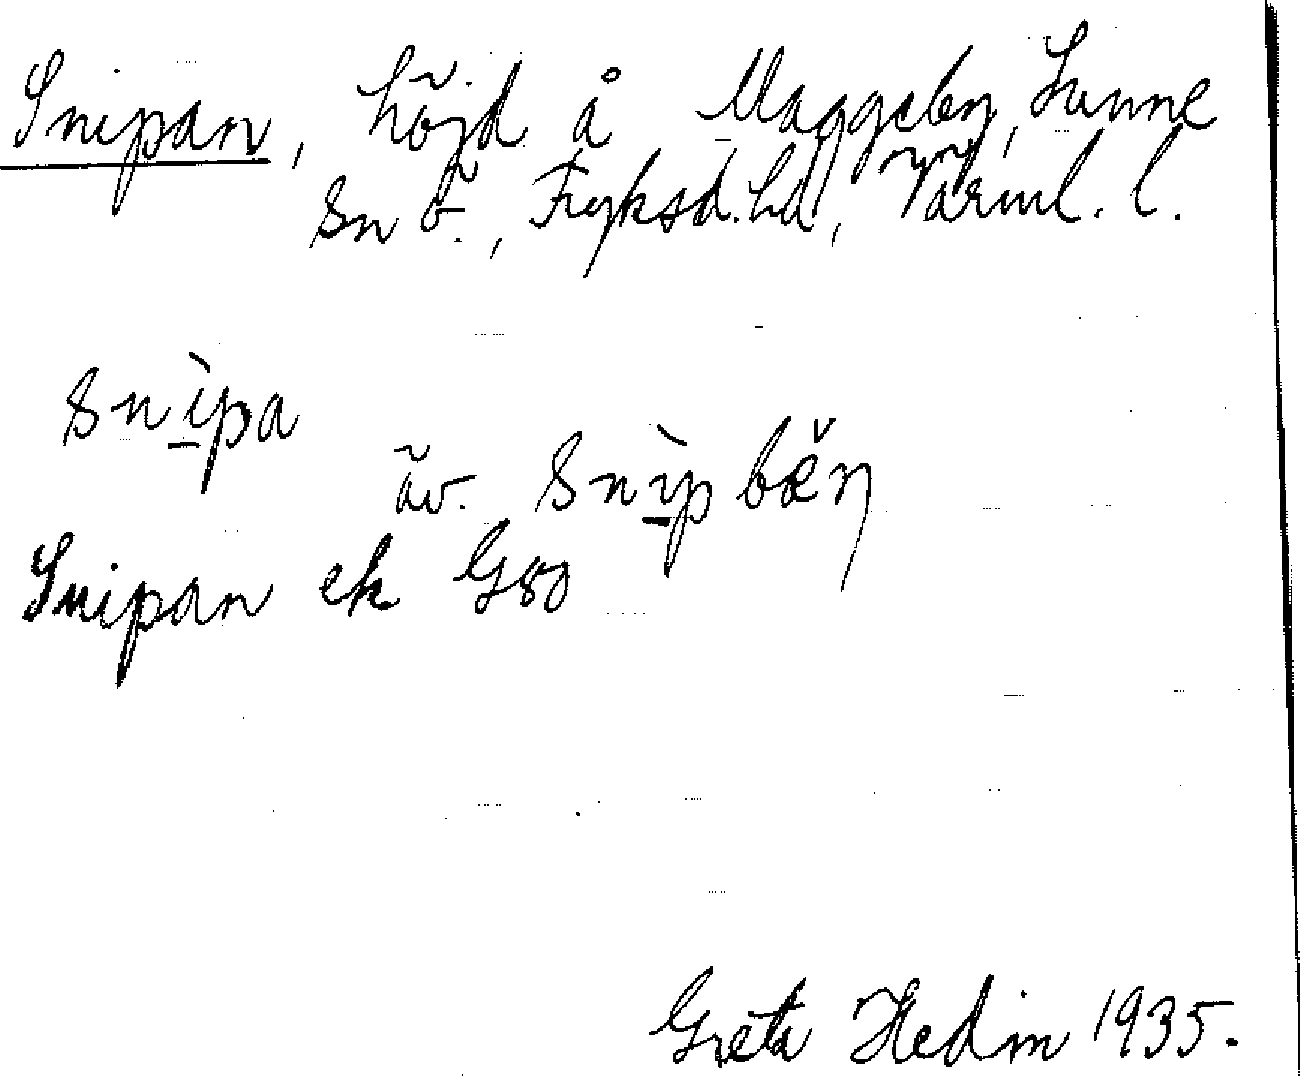 Snipan, höjd å Maggeby, Sunne
sn Ö., Fryksd. hd, Värml. l.
snìpa
äv. snìpbĕ̈n
Snipan ek G80
Greta Hedin 1935.